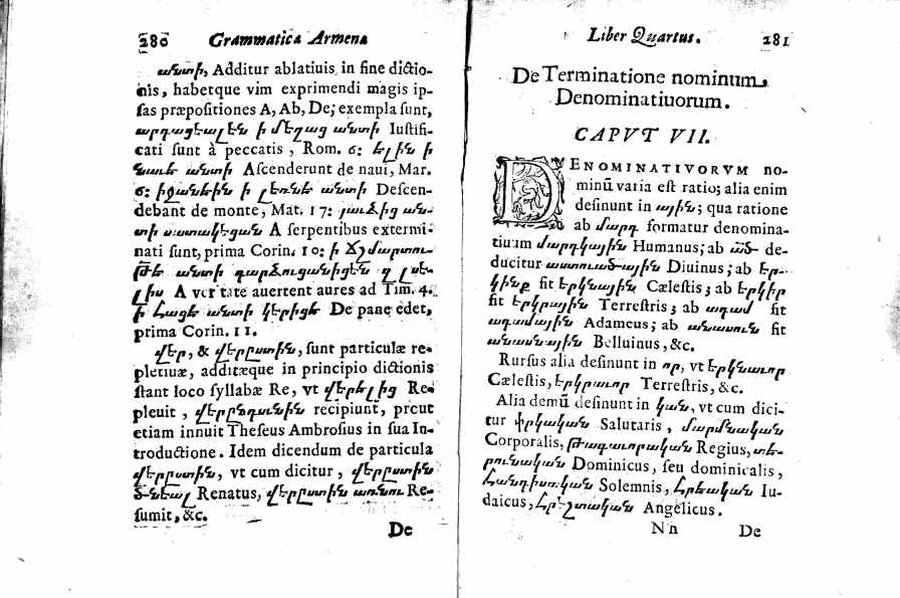 280 Grammatica Armena
անտի, Additur ablatiuis in fine dictio-
nis, habetque vim exprimendi magis ip-
sas præpositiones A, Ab, De; exempla sunt,
արդարացեալ են ի մեղաց անտի Iustifi-
cati sunt à peccatis, Rom. 6: ելին ի
նաւէ անտի Ascenderunt de naui, Mar.
6: իջանէին ի լեռնէ անտի Descen-
debant de monte, Mat. 17: յաւձից ան-
տի սատակեցան A serpentibus extermi-
nati sunt, prima Corin. 10: ի ճշմարտու-
թէ անտի դարձուցանիցեն զ լսե-
լիս A veritate auertent aures ad Tim. 4.
ի հացէ անտի կերիցէ De pane edet,
prima Corin. 11.
վեր, & վերըստին, sunt particulæ re-
pletiuæ, additæque in principio dictionis
stant loco syllabæ Re, vt վերելից Re-
pleuit, recipiunt, prout
etiam innuit Theseus Ambrosius in sua In-
troductione. Idem dicendum de particula
վերըստին, vt cum dicitur, վերըստին
ծնեալ Renatus, վերըստին առնու Re-
sumit, &c.
De
Liber Quartus. 281
De Terminatione nominum
Denominatiuorum.
CAPVT VII.
DENOMINATIVORVM no-
minũ varia est ratio; alia enim
desinunt in ային; qua ratione
ab մարդ formatur denomina-
tiuum մարդկային Humanus; ab ած de-
ducitur աստուածային Diuinus; ab եր-
կինք fit երկնային Cælestis; ab երկիր
fit երկրային Terrestris; ab ադամ fit
ադամային Adameus; ab անասուն fit
անասնային Belluinus, &c.
Rursus alia desinunt in որ, vt երկնաւոր
Cælestis, երկրաւոր Terrestris, &c.
Alia demũ desinunt in կան, vt cum dici-
tur փրկական Salutaris, մարմնական
Corporalis, թագաւորական Regius, տե-
րունական Dominicus, seu dominicalis,
հանդիսական Solemnis, հրեական Iu-
daicus, հրեշտական Angelicus.
Nn De